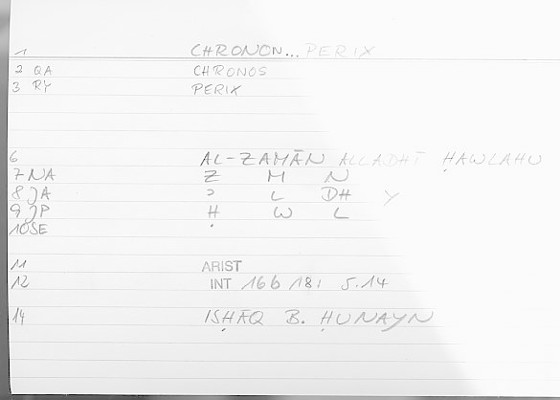 1 CHRONON... PERIX
2 QA CHRONOS
3 RY PERIX
6 AL-ZAMĀN ALLADHĪ ḤAWLAHU
7 NA Z M N
8 JA ʾ L DH Y
9 JP Ḥ W L
10 SE
11 ARIST
12 INT 16b 18: 5.14
14 ISḤĀQ B. ḤUNAYN